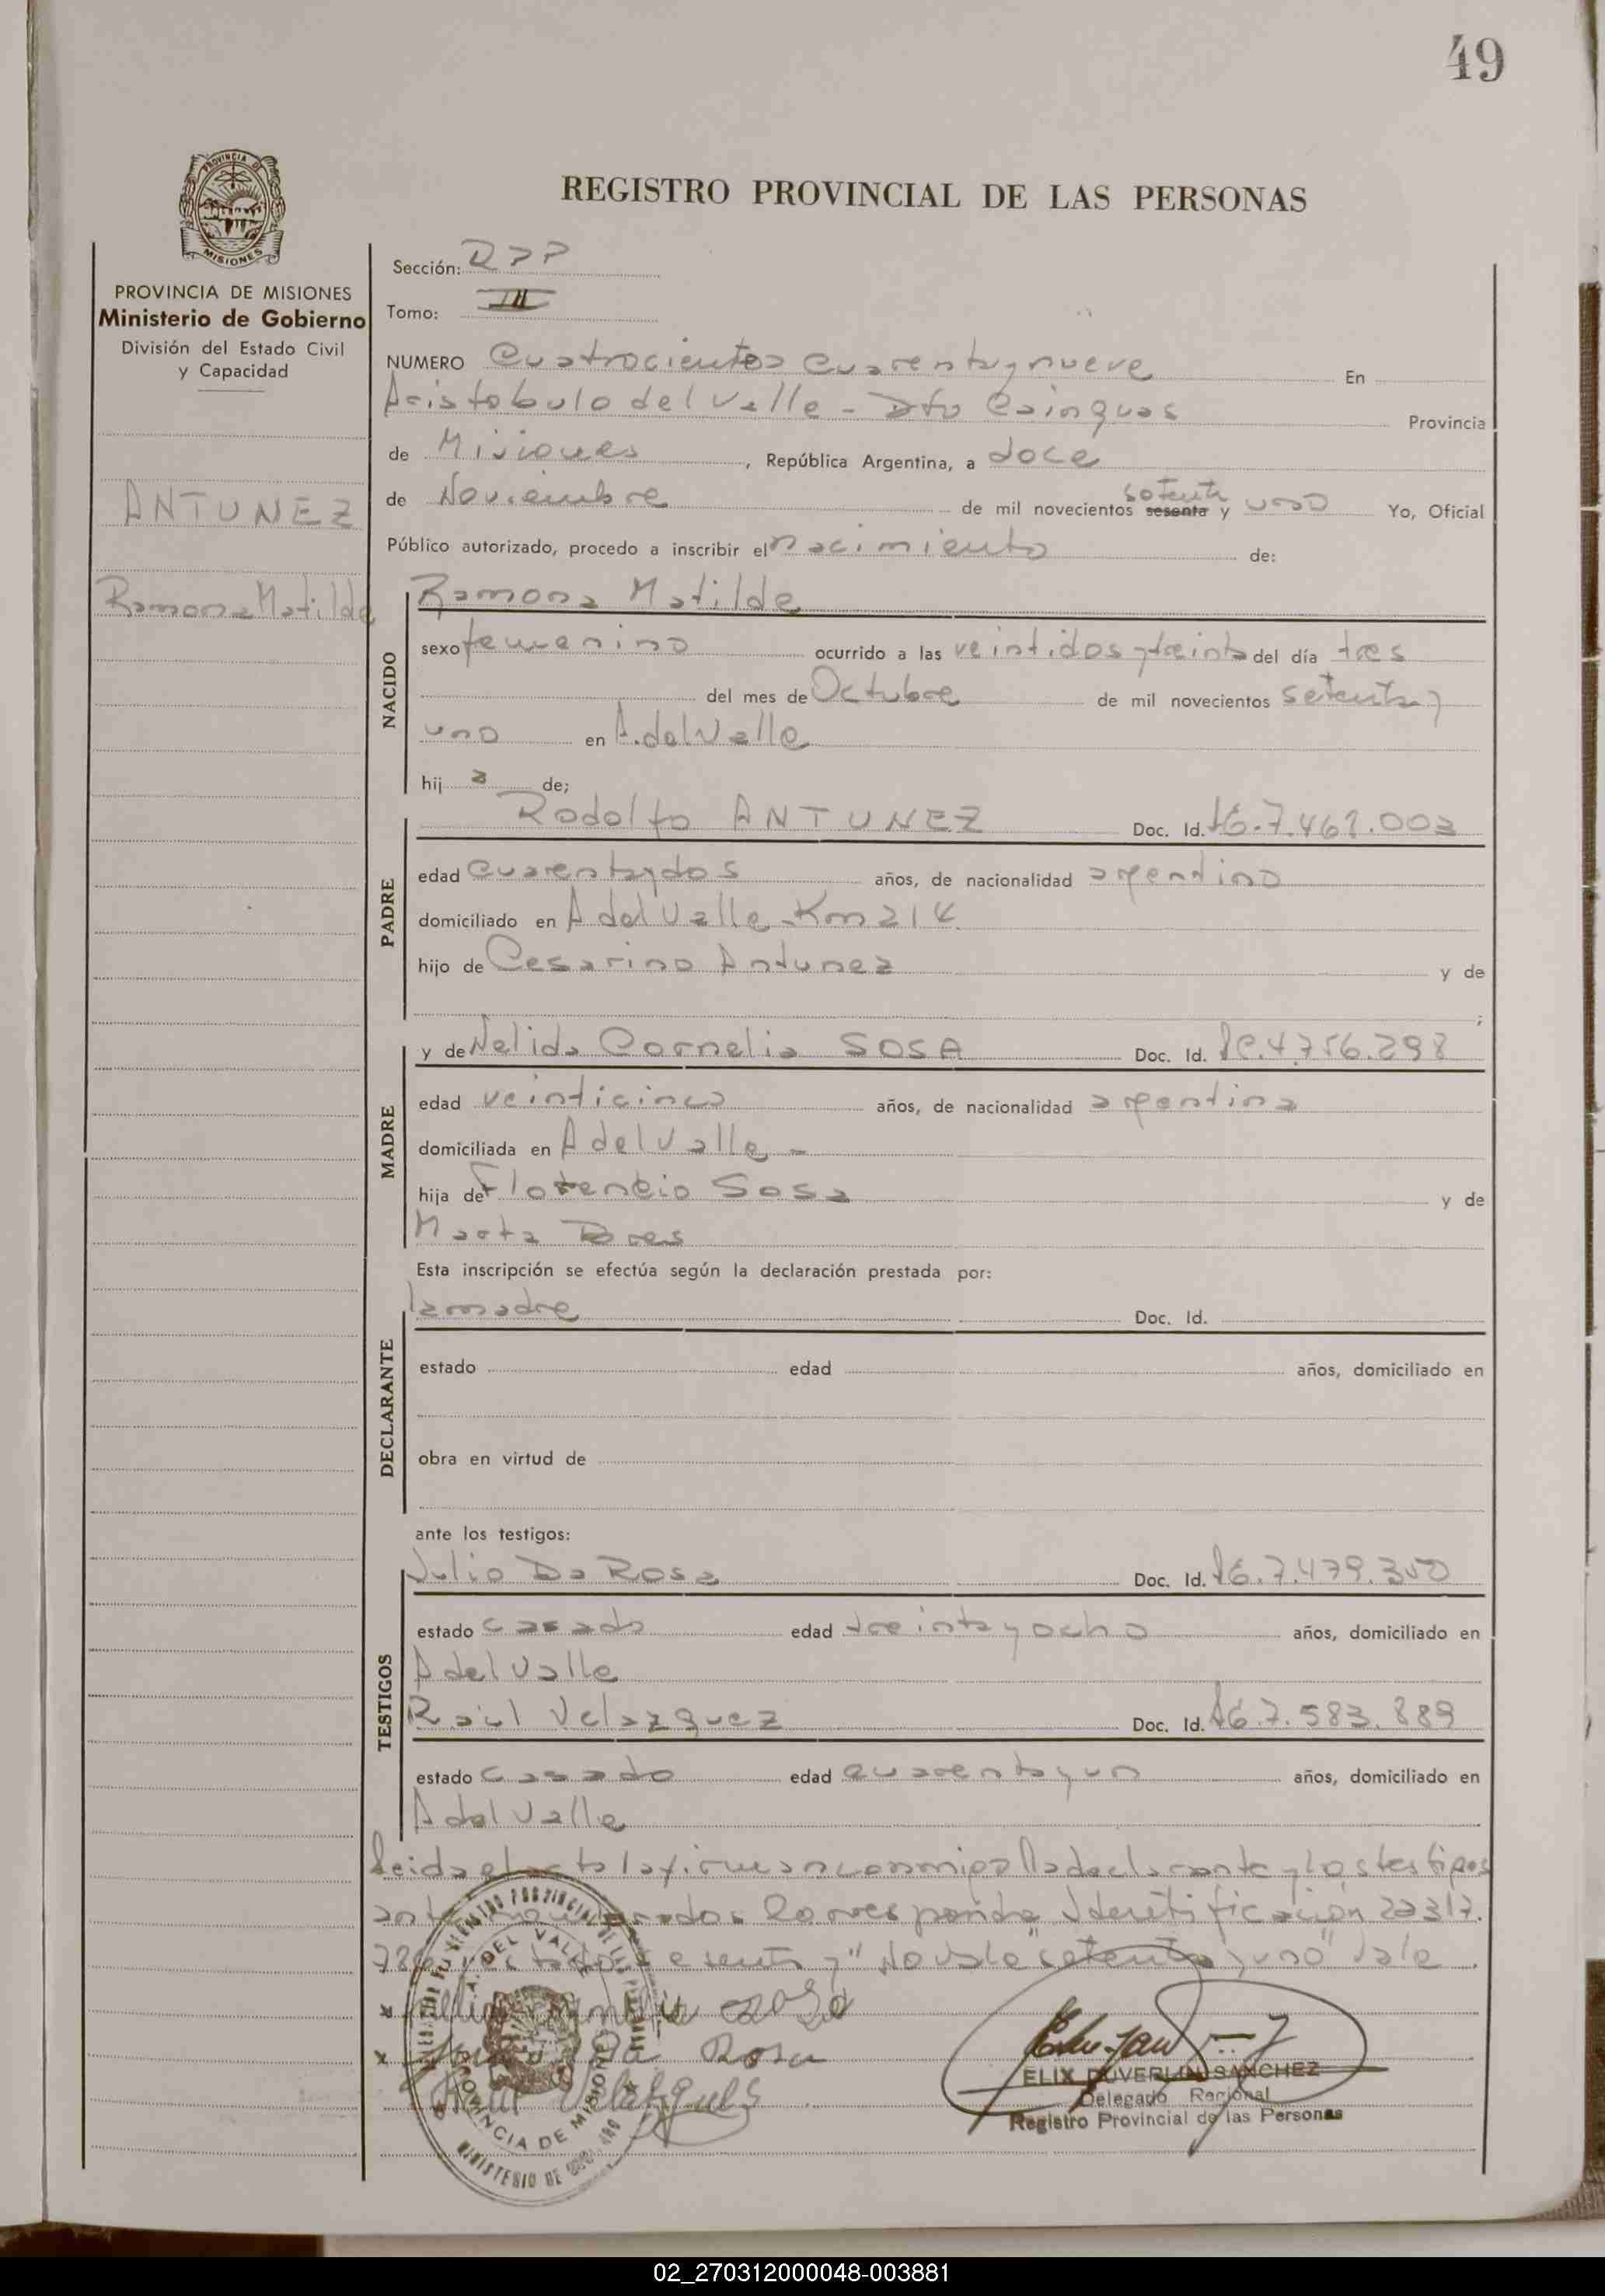 49
PROVINCIA DE
MISIONES
REGISTRO PROVINCIAL DE LAS PERSONAS
PROVINCIA DE MISIONES
Ministerio de Gobierno
División del Estado Civil
y Capacidad
ANTUNEZ
Ramona Matilde
Sección: RPP
Tomo: III
NUMERO Cuatrocientos Cuarenta y nueve En
Aristobulo del Valle - Dto Cainguas Provincia
de Misiones, República Argentina, a doce
de Noviembre de mil novecientos sesenta setenta y uno Yo, Oficial
Público autorizado, procedo a inscribir el nacimiento de:
NACIDO
Ramona Matilde
sexo femenino ocurrido a las veintidos y treinta del día tres
del mes de Octubre de mil novecientos setenta y
uno en A. del Valle
hij a de;
PADRE
Rodolfo ANTUNEZ Doc. Id. 7.461.003
edad cuarenta y dos años, de nacionalidad argentino
domiciliado en A del Valle - Km 214
hijo de Cesarino Antunez y de
;
MADRE
y de Nelida Cornelia SOSA Doc. Id. 4.756.298
edad veinticinco años, de nacionalidad argentina
domiciliada en A del Valle -
hija de Florencio Sosa y de
Marta
Esta inscripción se efectúa según la declaración prestada por:
DECLARANTE
la madre Doc. Id.
estado edad años, domiciliado en
obra en virtud de
ante los testigos:
TESTIGOS
Julio Da Rosa Doc. Id. 7.479.350
estado casado edad treinta y ocho años, domiciliado en
A del Valle
Raúl Velazquez Doc. Id. 7.583.889
estado casado edad cuarenta y un años, domiciliado en
A del Valle
Leida el acta la firman conmigo la declarante y los testigos
Corresponde Identificación 22317.
786 "No vale" setenta y uno" Vale
Sosa
Da Rosa
A. DEL VALLE
PROVINCIA DE MISIONES
ELIX DUVERLIN SANCHEZ
Delegado Regional
Registro Provincial de las Personas
02_270312000048-003881